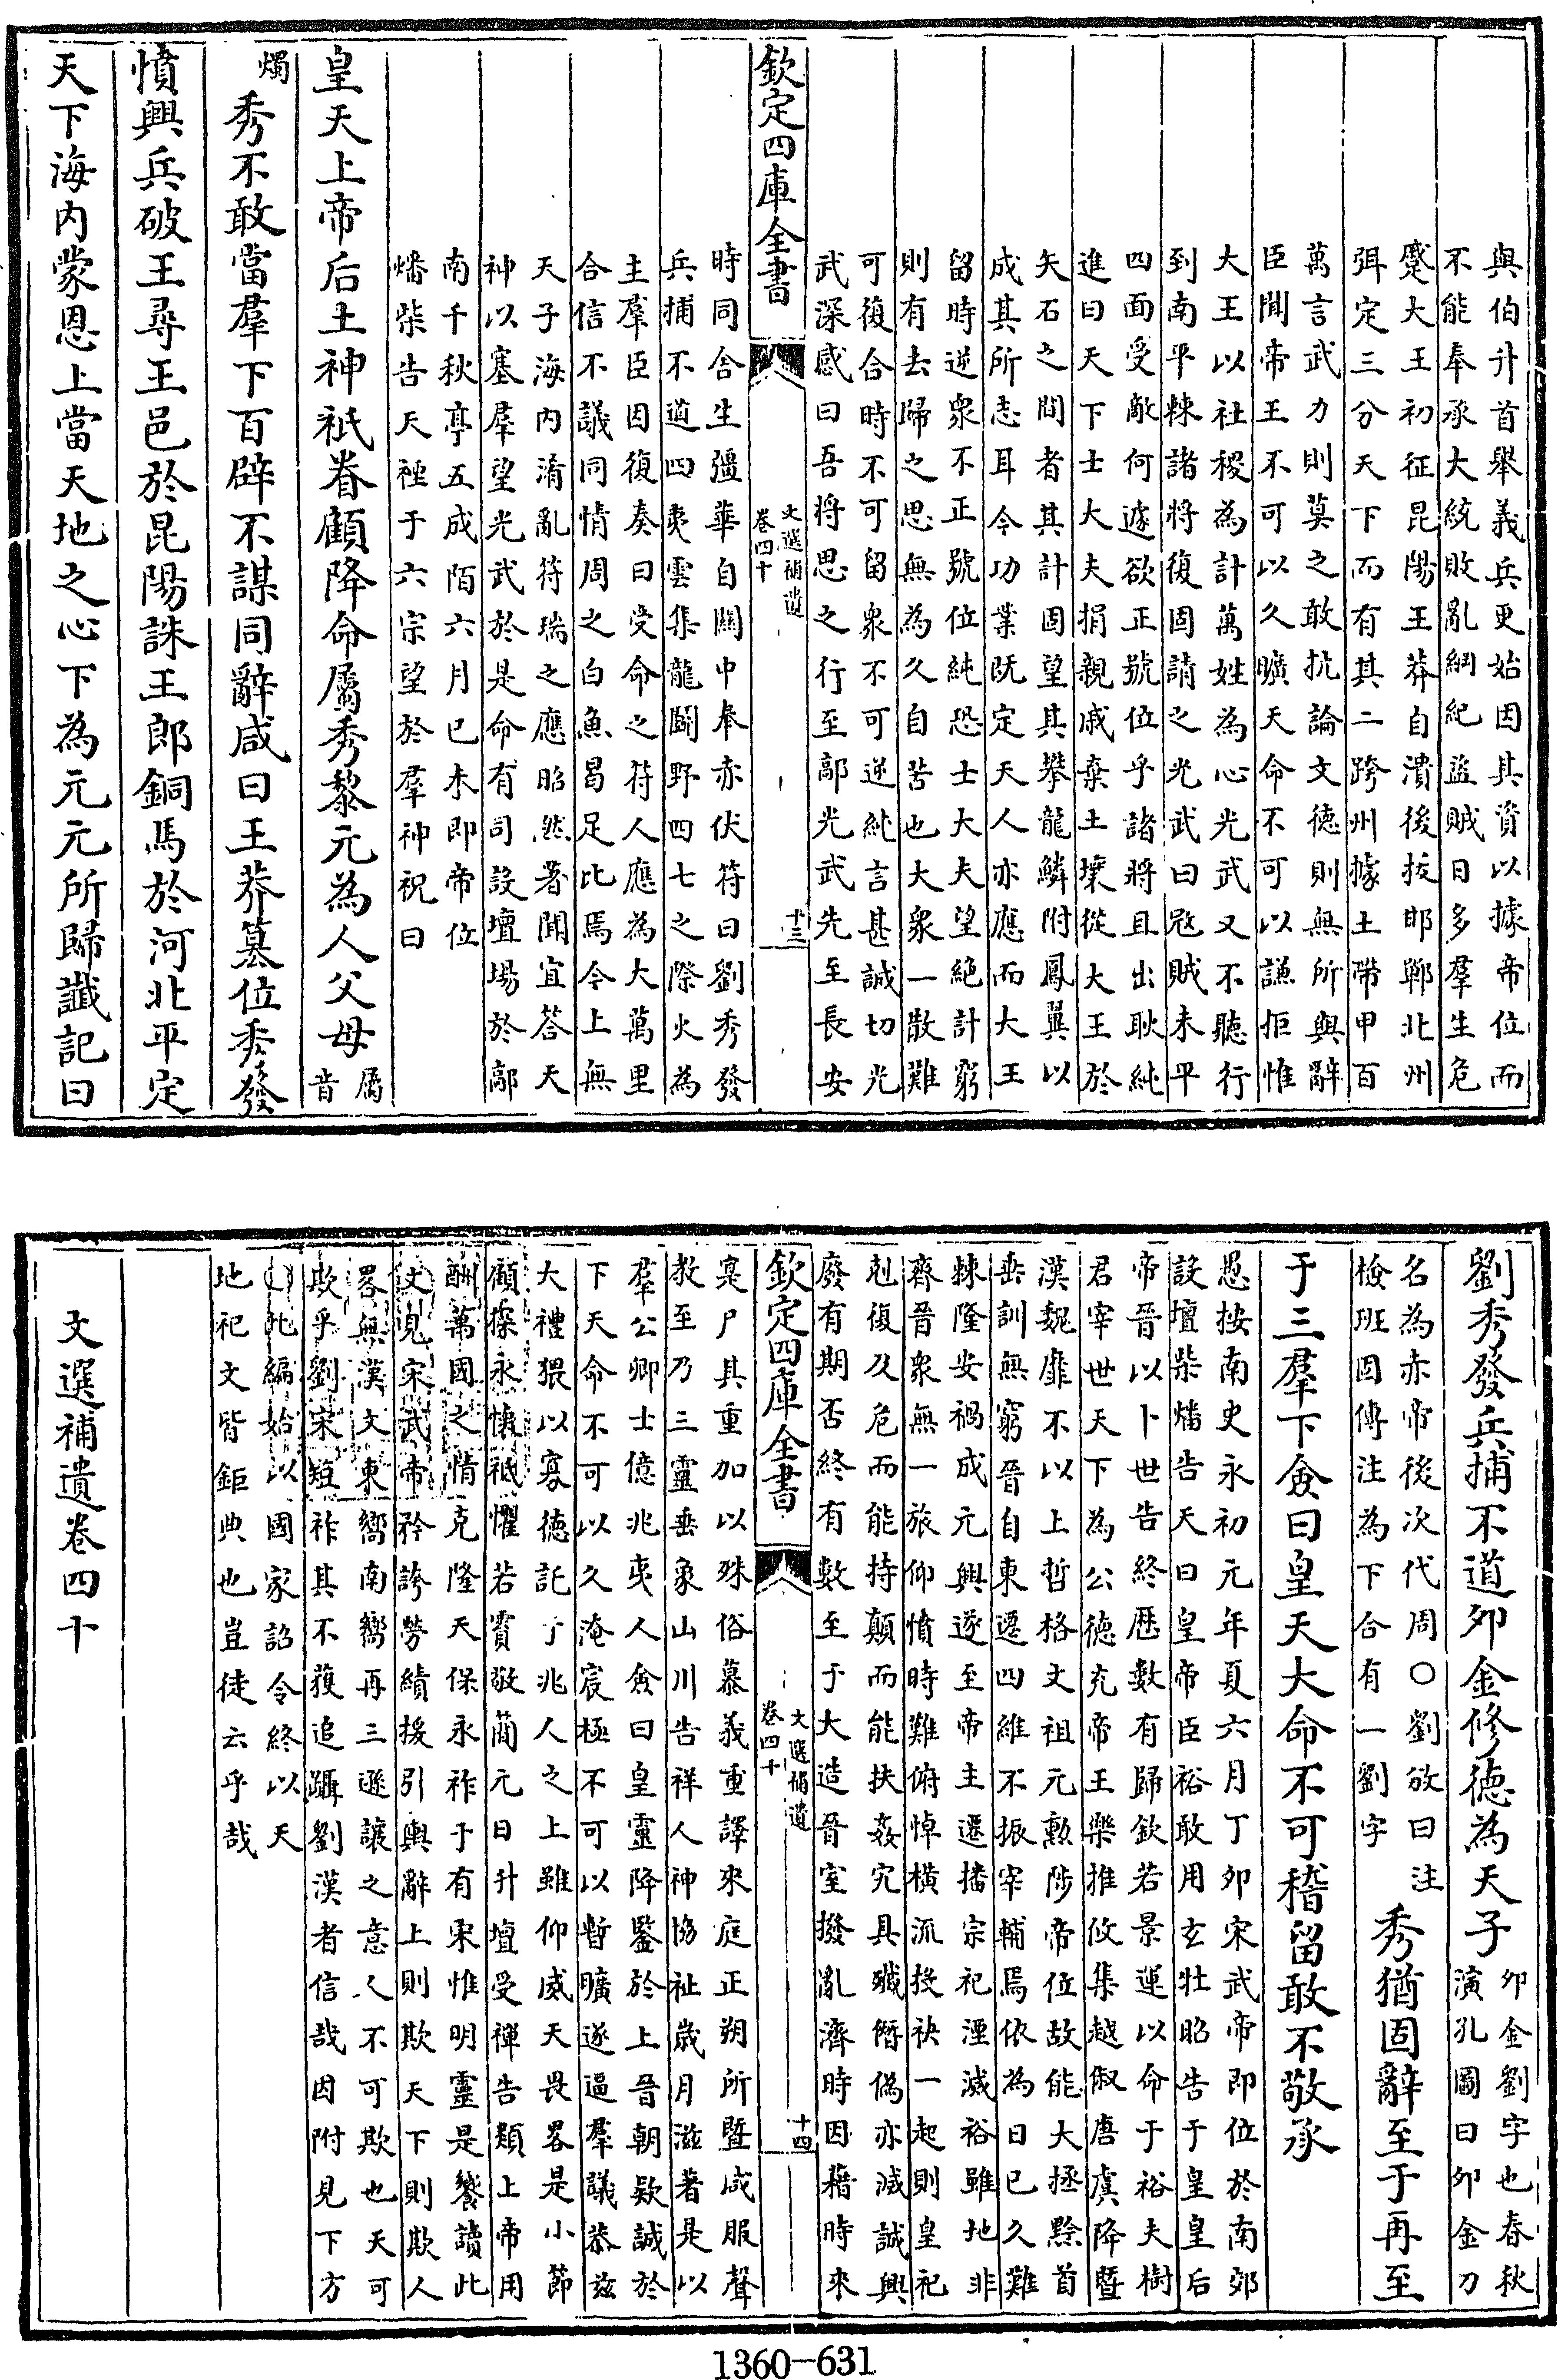 與伯升首舉義兵更始因其資以據帝位而
不能奉承大統敗亂綱紀盜賊日多羣生危
蹙大王初征昆陽王莽自潰後拔邯鄲北州
弭定三分天下而有其二跨州據土帶甲百
萬言武力則莫之敢抗論文德則無所與辭
臣聞帝王不可以久曠天命不可以謙拒惟
大王以社稷為計萬姓為心光武又不聽行
到南平棘諸將復固請之光武曰冦賊未平
四面受敵何遽欲正號位乎諸將且出耿純
進曰天下士大夫捐親戚棄土壤從大王於
矢石之間者其計固望其攀龍鱗附鳳翼以
成其所志耳今功業既定天人亦應而大王
留時逆衆不正號位純恐士大夫望絶計窮
則有去歸之思無為久自苦也大衆一散難
可復合時不可留衆不可逆純言甚誠切光
武深感曰吾將思之行至鄗光武先至長安
欽定四庫全書
文選補遺
卷四十
十三
時同舎生彊華自關中奉赤伏符曰劉秀發
兵捕不道四夷雲集龍鬬野四七之際火為
主羣臣因復奏曰受命之符人應為大萬里
合信不議同情周之白魚曷足比焉今上無
天子海内淆亂符瑞之應昭然著聞宜答天
神以塞羣望光武於是命有司設壇場於鄗
南千秋亭五成陌六月已未即帝位
燔柴告天禋于六宗望於羣神祝曰
皇天上帝后土神祇眷顧降命屬秀黎元為人父母屬
音
燭秀不敢當羣下百辟不謀同辭咸曰王莽簒位秀發
憤興兵破王尋王邑於昆陽誅王郎銅馬於河北平定
天下海内蒙恩上當天地之心下為元元所歸讖記曰
劉秀發兵捕不道卯金修德為天子卯金劉字也春秋
演孔圖曰卯金刀
名為赤帝後次代周○劉攽曰注
檢班固傳注為下合有一劉字
秀猶固辭至于再至
于三羣下僉曰皇天大命不可稽留敢不敬承
愚按南史永初元年夏六月丁卯宋武帝即位於南郊
設壇柴燔告天曰皇帝臣裕敢用玄牡昭告于皇皇后
帝晉以卜世告終歴數有歸欽若景運以命于裕夫樹
君宰世天下為公德充帝王樂推攸集越俶唐虞降暨
漢魏靡不以上哲格文祖元勲陟帝位故能大拯黔首
垂訓無窮晉自東遷四維不振宰輔焉依為日已久難
棘隆安禍成元興遂至帝主遷播宗祀湮滅裕雖地非
齊晉衆無一旅仰憤時難俯悼横流投袂一起則皇祀
尅復及危而能持顛而能扶姦宄具殲僭偽亦滅誠興
廢有期否終有數至于大造晉室撥亂濟時因藉時來
欽定四庫全書
文選補遺
卷四十
十四
寔尸其重加以殊俗慕義重譯來庭正朔所暨咸服聲
教至乃三靈垂象山川告祥人神協祉歳月滋著是以
羣公卿士億兆夷人僉曰皇靈降鑒於上晉朝欵誠於
下天命不可以久淹宸極不可以暫曠遂逼羣議恭兹
大禮猥以寡德託于兆人之上雖仰威天畏畧是小節
顧探永懷祇懼若霣敬簡元日升壇受禪告類上帝用
酬萬國之情克隆天保永祚于有宋惟明靈是饗讀此
文見宋武帝矜誇勞績援引輿辭上則欺天下則欺人
畧無漢文東嚮南嚮再三遜讓之意人不可欺也天可
欺乎劉宋短祚其不獲追躡劉漢者信哉因附見下方
此編始以國家詔令終以天
地祀文皆鉅典也豈徒云乎哉
文選補遺卷四十
1360-631